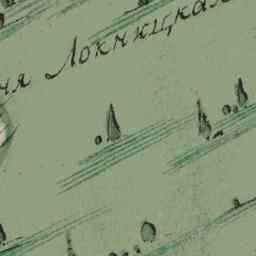 ня Локницкая